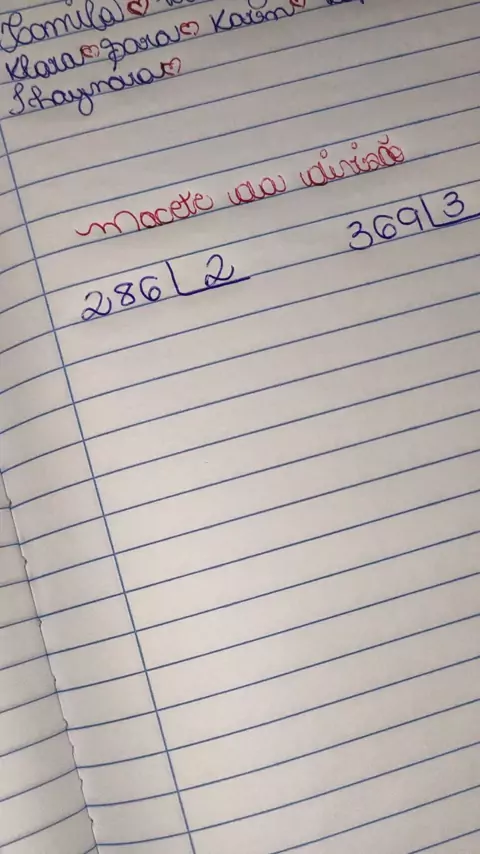 Kamila
Klara para Karin
Sthaynara
Macete da divisão
286 2 369 3